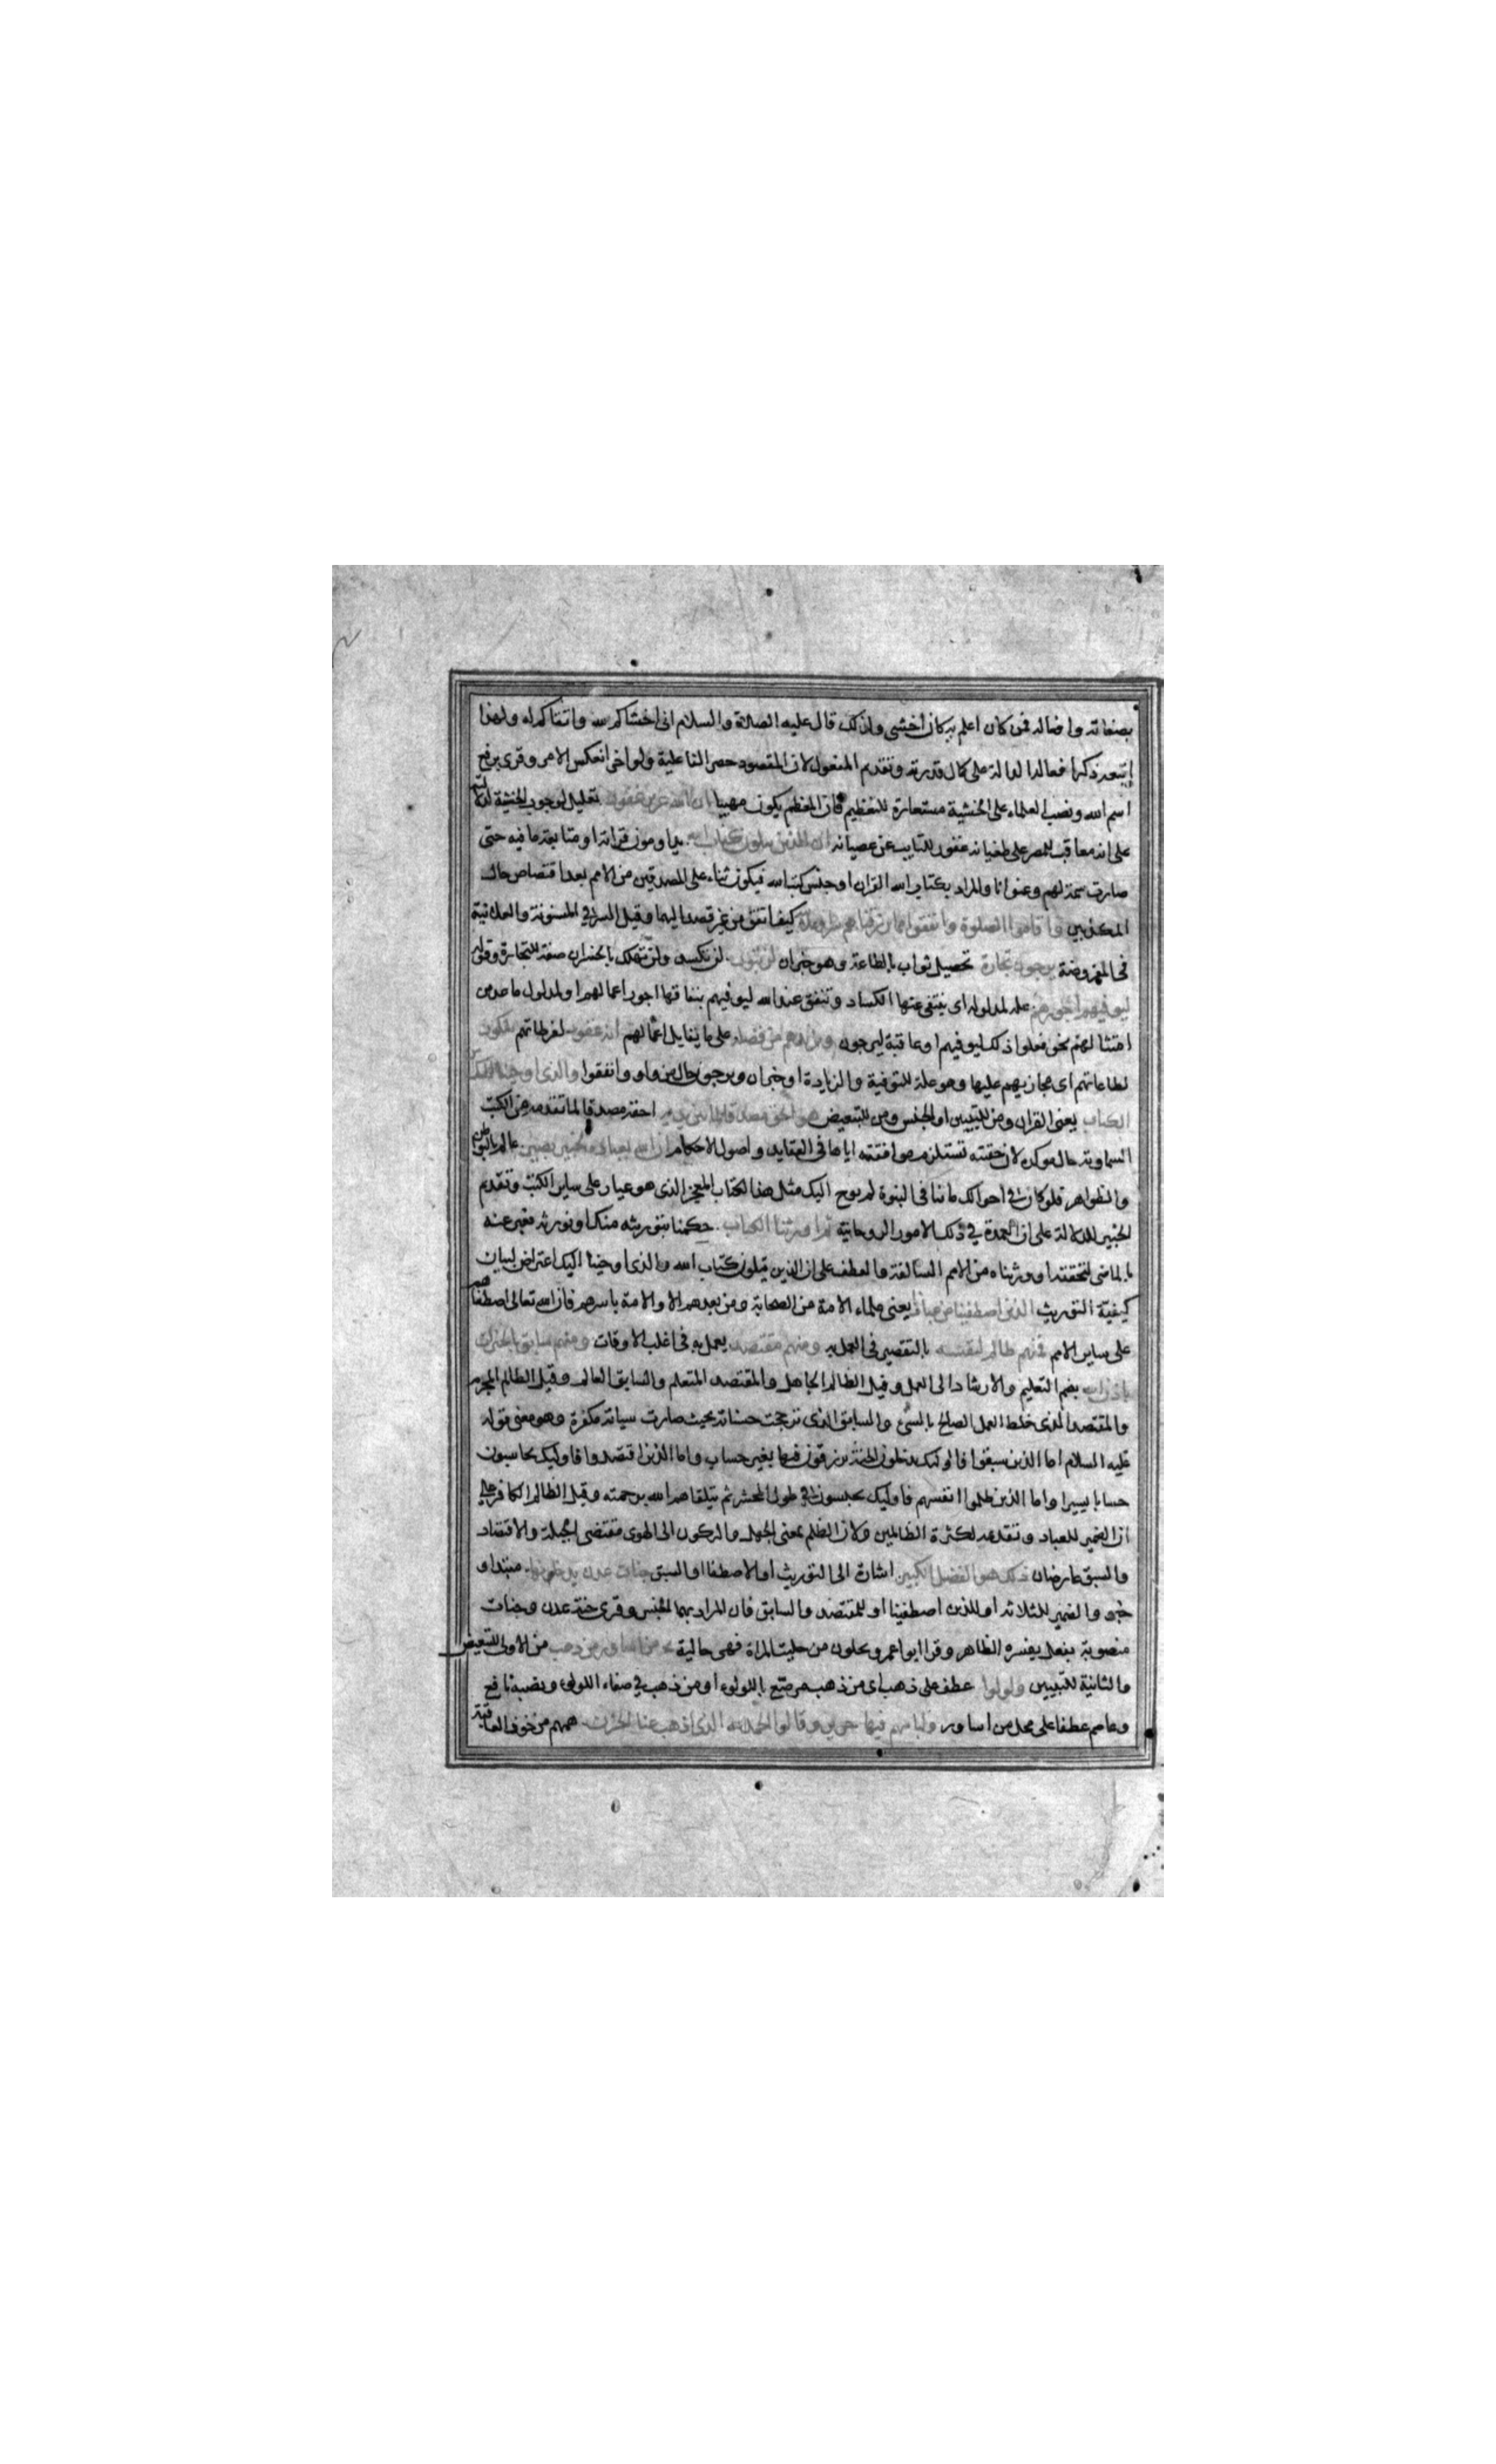 بصفاته وافعاله فمن كان اعلم به كان اخشى ولذلك قال عليه الصلاة والسلام انى اخشاكم لله واتقاكم له ولهذا
اتبعه ذكر افعاله الدالة على كمال قدرته وتقديم المفعول لان المقصود حصر الفاعلية ولو اخر انعكس الامر وقرى برفع
اسم الله ونصب العلماء على ان الخشية مستعارة للتعظيم فان المعظم يكون مهيبا ان الله عزيز غفور تعليل لوجوب الخشية لدلالته
على انه معاقب للمصر على طغيانه غفور للتايب عن عصيانه ان الذين يتلون كتاب الله يداومون قراته او متابعة ما فيه حتى
صارت سمة لهم وعنوانا والمراد بكتاب الله القران او جنس كتب الله فيكون ثناء على المصدقين من الامم بعد اقتصاص حال
المكذبين واقاموا الصلوة وانفقوا مما رزقناهم سرا وعلانية كيف اتفق من غير قصد اليهما وقيل السر فى المسنونة والعلانية
فى المفروضة يرجون تجارة تحصيل ثواب بالطاعة وهو خبر ان لن تبور لن تكسد ولن تهلك بالخسران صفة للتجارة وقوله
ليوفيهم اجورهم علة لمدلوله اى ينتفى عنها الكساد وتنفق عند الله ليوفيهم بنفاقها اجور اعمالهم او لمدلول ما عد من
امتثالهم نحو فعلوا ذلك ليوفيهم او عاقبة ليرجون ويزيدهم من فضله على ما يقابل اعمالهم انه غفور لفرطاتهم شكور
لطاعاتهم اى مجازيهم عليها وهو علة للتوفية والزيادة او خبر ان ويرجون حال من واو وانفقوا والذى اوحينا اليك من
الكتاب يعنى القران ومن للتبيين او الجنس ومن للتبعيض هو الحق مصدقا لما بين يديه احقه مصدقا لما تقدمه من الكتب
السماوية حال موكدة لان حقيته تستلزم موافقته اياها فى العقايد واصول الاحكام ان الله بعباده لخبير بصير عالم بالبواطن
والظواهر فلو كان فى احوالك ما ينافى النبوة لم يوح اليك مثل هذا الكتاب المعجز الذى هو عيار على ساير الكتب وتقديم
الخبير للدلالة على ان العمدة فى ذلك الامور الروحانية ثم اورثنا الكتاب حكمنا بتوريثه منك او نورثه فعبر عنه
بالماضى لتحققه او ورثناه من الامم السالفة والعطف على ان الذين يتلون كتاب الله والذى اوحينا اليك اعتراض لبيان
كيفية التوريث الذين اصطفينا من عبادنا يعنى علماء الامة من الصحابة ومن بعدهم الا والامة باسرهم فان الله تعالى اصطفاهم
على ساير الامم فمنهم ظالم لنفسه بالتقصير فى العمل به ومنهم مقتصد يعمل به فى اغلب الاوقات ومنهم سابق بالخيرات
باذن الله بضم التعليم والارشاد الى العمل وقيل الظالم الجاهل والمقتصد المتعلم والسابق العالم وقيل الظالم المجرم
والمقتصد الذى خلط العمل الصالح بالسىء والسابق الذى ترجحت حسناته بحيث صارت سيآته مكفرة وهو معنى قوله
عليه السلام اما الذين سبقوا فاوليك يدخلون الجنة يرزقون فيها بغير حساب واما الذين اقتصدوا فاوليك يحاسبون
حسابا يسيرا واما الذين ظلموا انفسهم فاوليك يحبسون فى طول المحشر ثم يتلقاهم الله برحمته وقيل الظالم الكافر على
ان الضمير للعباد وتقديمه لكثرة الظالمين ولان الظلم بمعنى الجهل والركون الى الهوى مقتضى الجبلة والاقتصاد
والسبق عارضان ذلك هو الفضل الكبير اشارة الى التوريث او الاصطفا او السبق جنات عدن يدخلونها مبتدا و
خبر والضمير للثلاثة او للذين اصطفينا او للمقتصد والسابق فان المراد بهما الجنس وقرى جنة عدن وجنات
منصوبة بفعل يفسره الظاهر وقرا ابو عمرو يحلون من حليت المراة فهى حالية من اساور من ذهب من الاولى للتبعيض
والثانية للتبيين ولولوا عطف على ذهب اى من ذهب مرصع باللولوء او من ذهب فى صفاء اللولوء ونصبه نافع
وعاصم عطفا على محل من اساور ولباسهم فيها حرير وقالوا الحمد لله الذى اذهب عنا الحزن همهم من خوف العاقبة